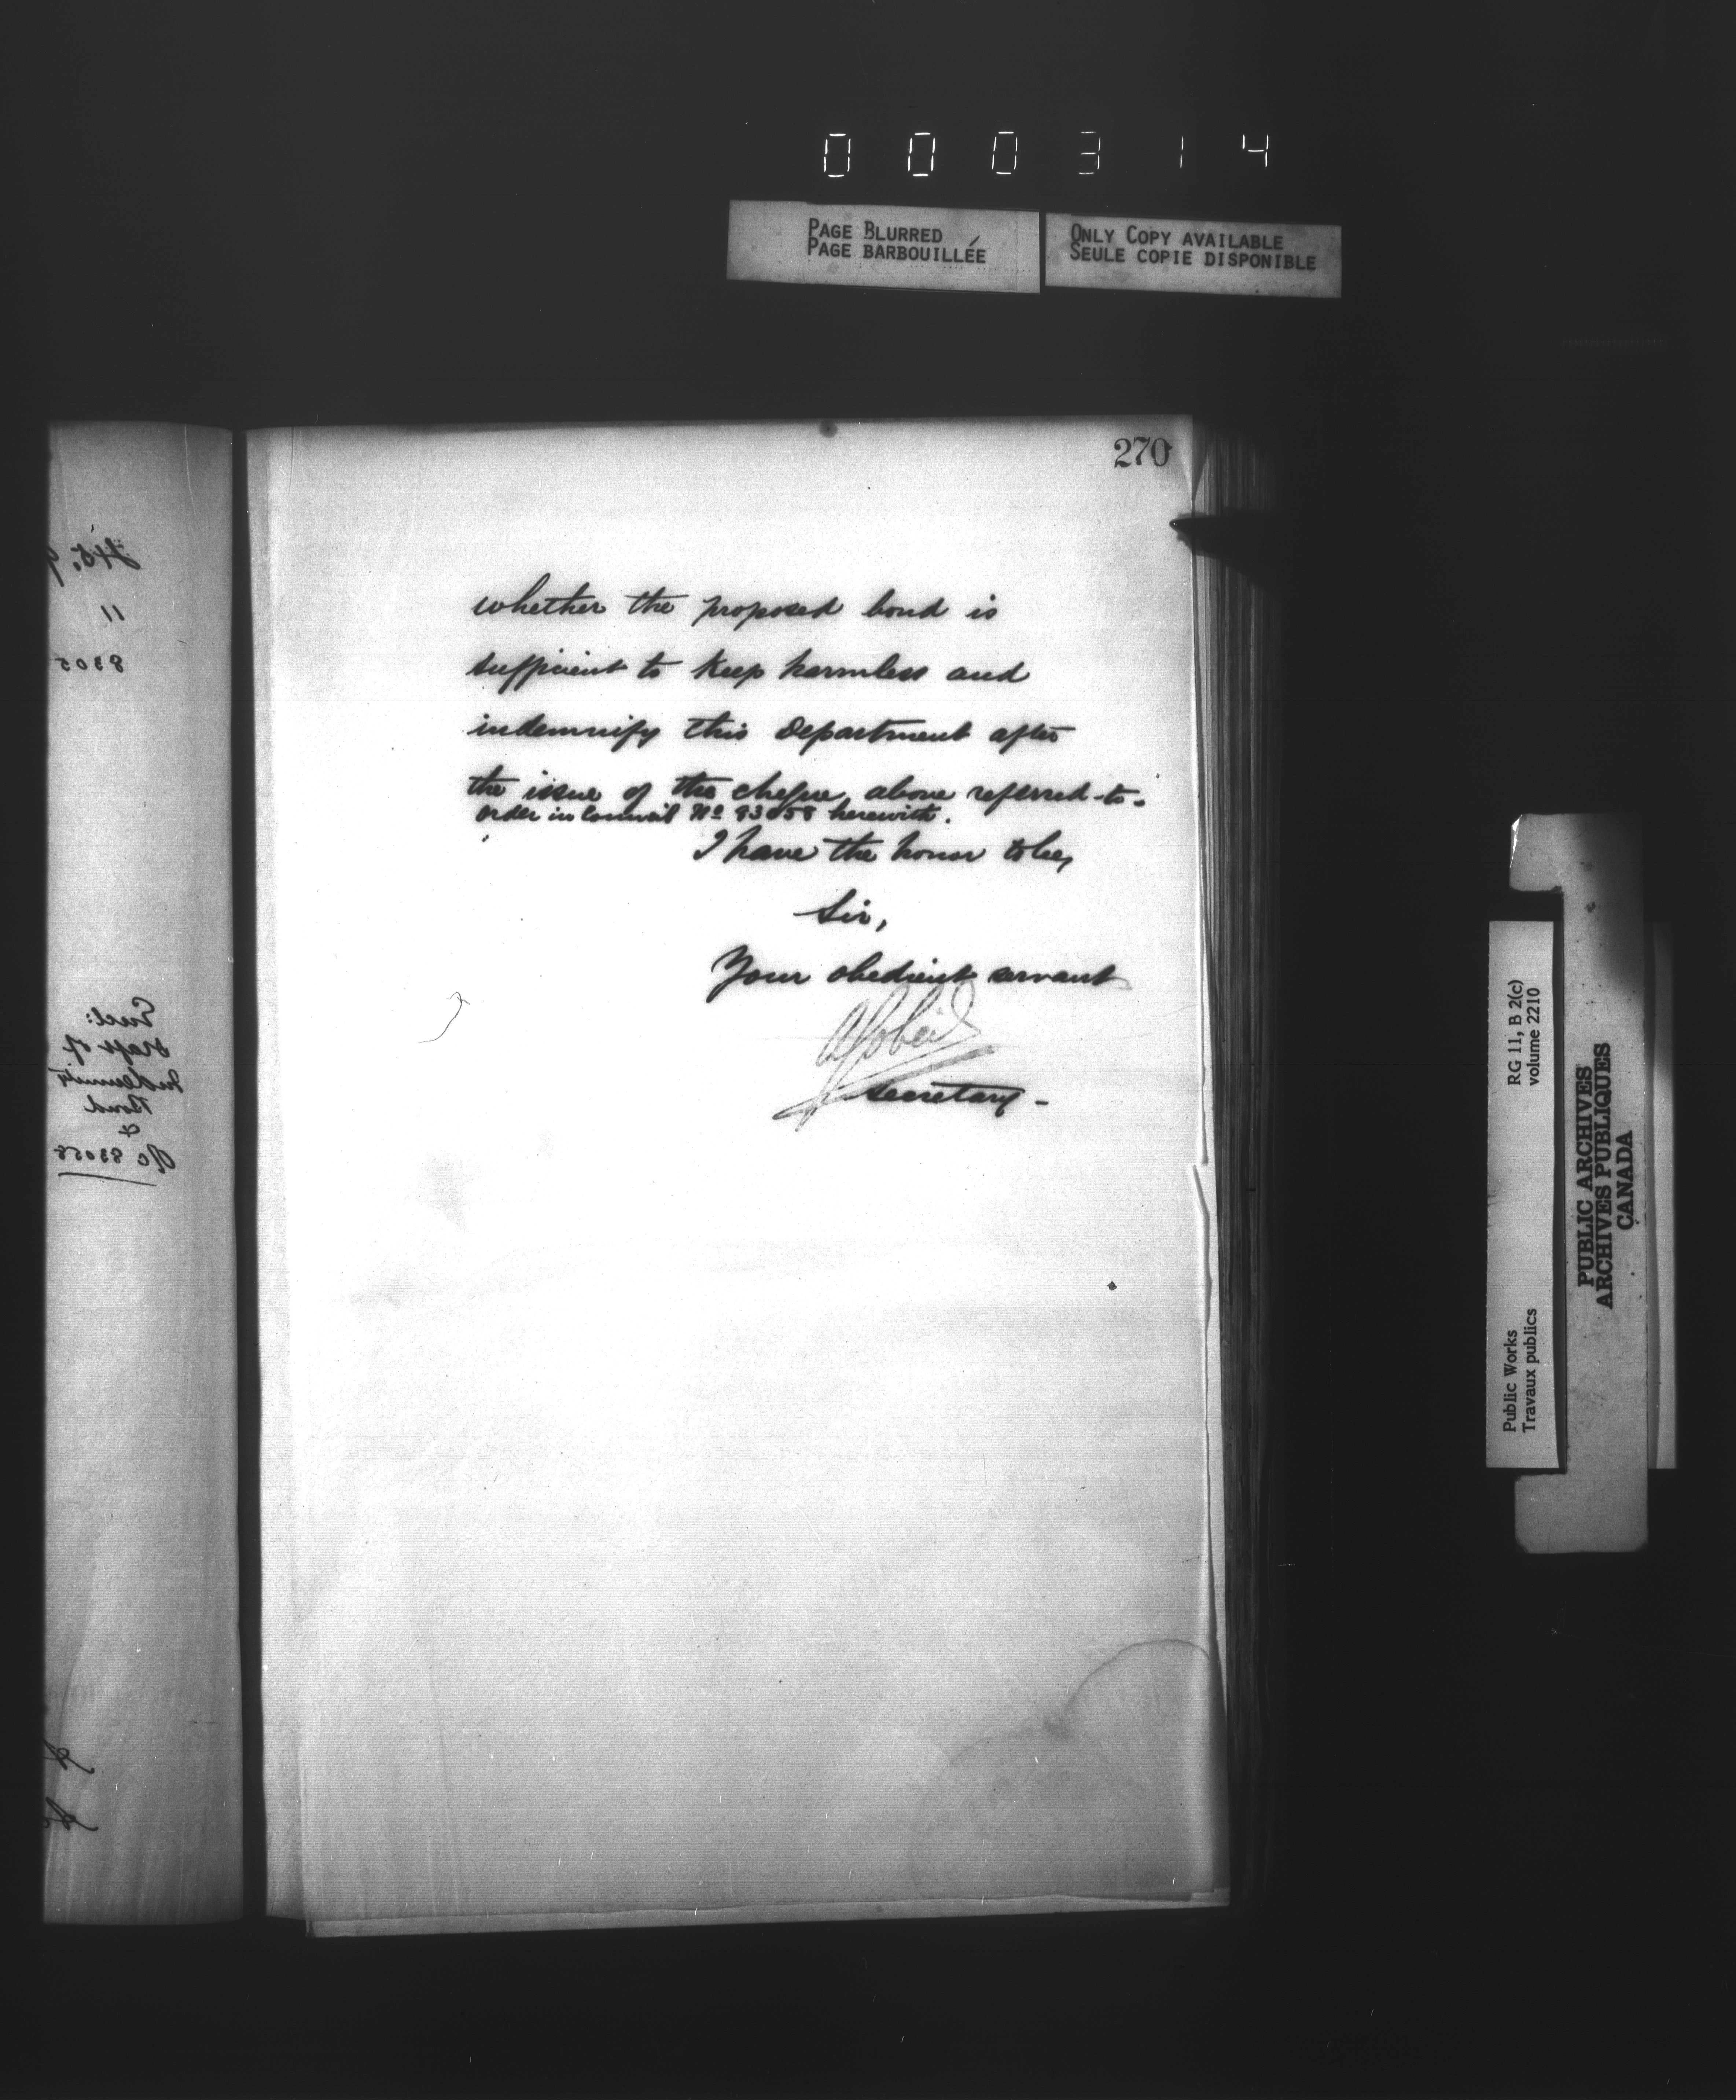 000314
PAGE BLURRED
PAGE BARBOUILLÉE
ONLY COPY AVAILABLE
SEULE COPIE DISPONIBLE
270
whether the proposed bond is
sufficient to keep harmless and
indemnify this Department after
the issue of the cheque above referred-to.
Order in Council No 83058 herewith.
I have the honor to be,
Sir,
Your obedient servant
AGobeil
Secretary -
11
8305
Encl:
Draft of
Indemnity
Bond
&
83058
RG 11, B 2(c)
volume 2210
Public Works
Travaux publics
PUBLIC ARCHIVES
ARCHIVES PUBLIQUES
CANADA